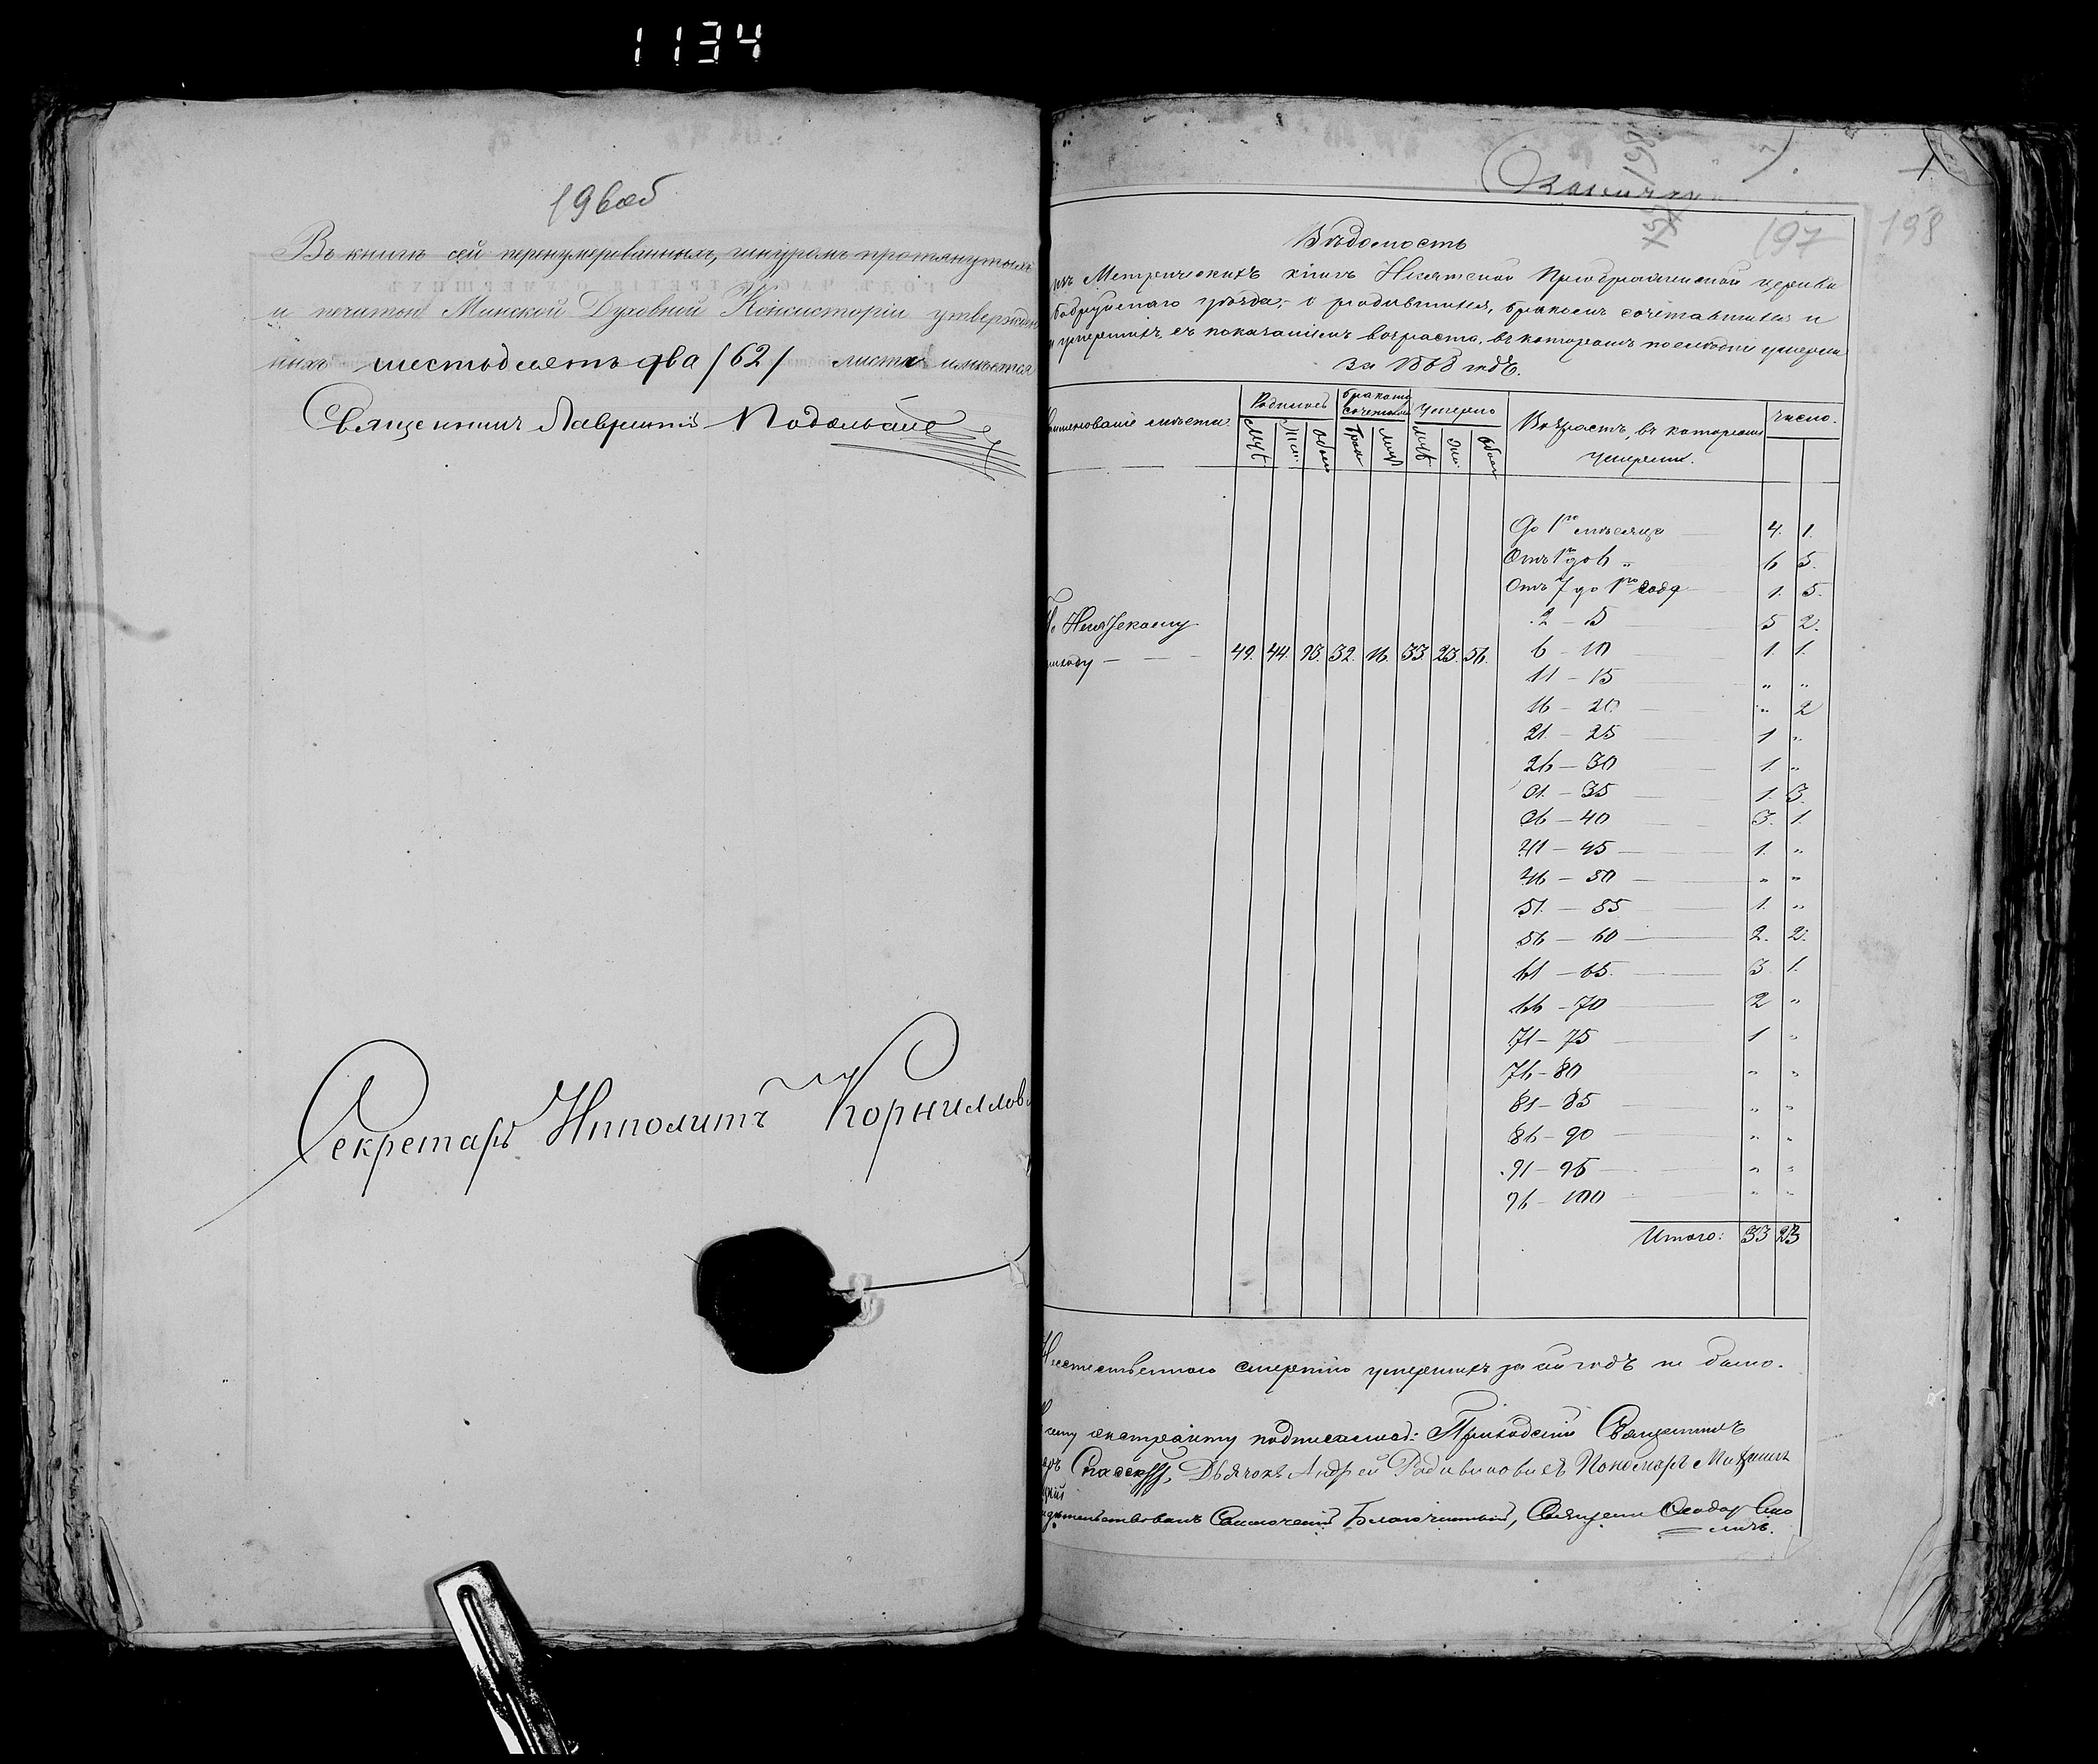 1134
196 об
Въ книгѣ сей перенумерованныхъ, шнуромъ протянутыхъ
и печатью Минской Духовной Консисторіи утвержден
ныхъ шестьдесятъ два /62/ листа имѣется
Священникъ Лаврентій
Секретарь Ипполитъ Корниллов
197 198
Вѣдомость
изъ Метрическихъ книгъ Преображенской церкви
Бобруйскаго уѣзда, о родившихся, бракомъ сочетавшихся и
умершихъ, съ показаніемъ возраста, въ которомъ послѣдніе умерли
за 1868 годъ.
Наименованіе мѣста. Родилось Бракомъ сочеталось Умерло Возрастъ, въ которомъ умерли. Число.
Муж Жен. Обоего Муж Жен. Обоего
До 1го мѣсяца 4. 1.
Отъ 1го до 6 „ 6 5.
Отъ 7 до 1го года 1. 5.
2 – 5 5 2.
приходу — 49. 44. 93. 32. 16. 33. 23. 56. 6 – 10 1. 1.
11 – 15 „ „
16 – 20 „ 2
21 – 25 1 „
26 – 30 1. „
31 – 35 1. 3.
36 – 40 3. 1.
41 – 45 1. „
46 – 50 „ „
51 – 55 1. „
56 – 60 2. 2.
61 – 65 3 1.
66 – 70 2 „
71 – 75 1 „
76 – 80 „ „
81 – 85 „ „
86 – 90 „ „
91 – 95 „ „
96 – 100 „ „
Итого: 33 23
смертію умершихъ за сей годъ не было.
сему экстракту подписались: Приходскій Священникъ
Дьячокъ Андрей Пономарь
Благочинный, Священ. Ѳеодор